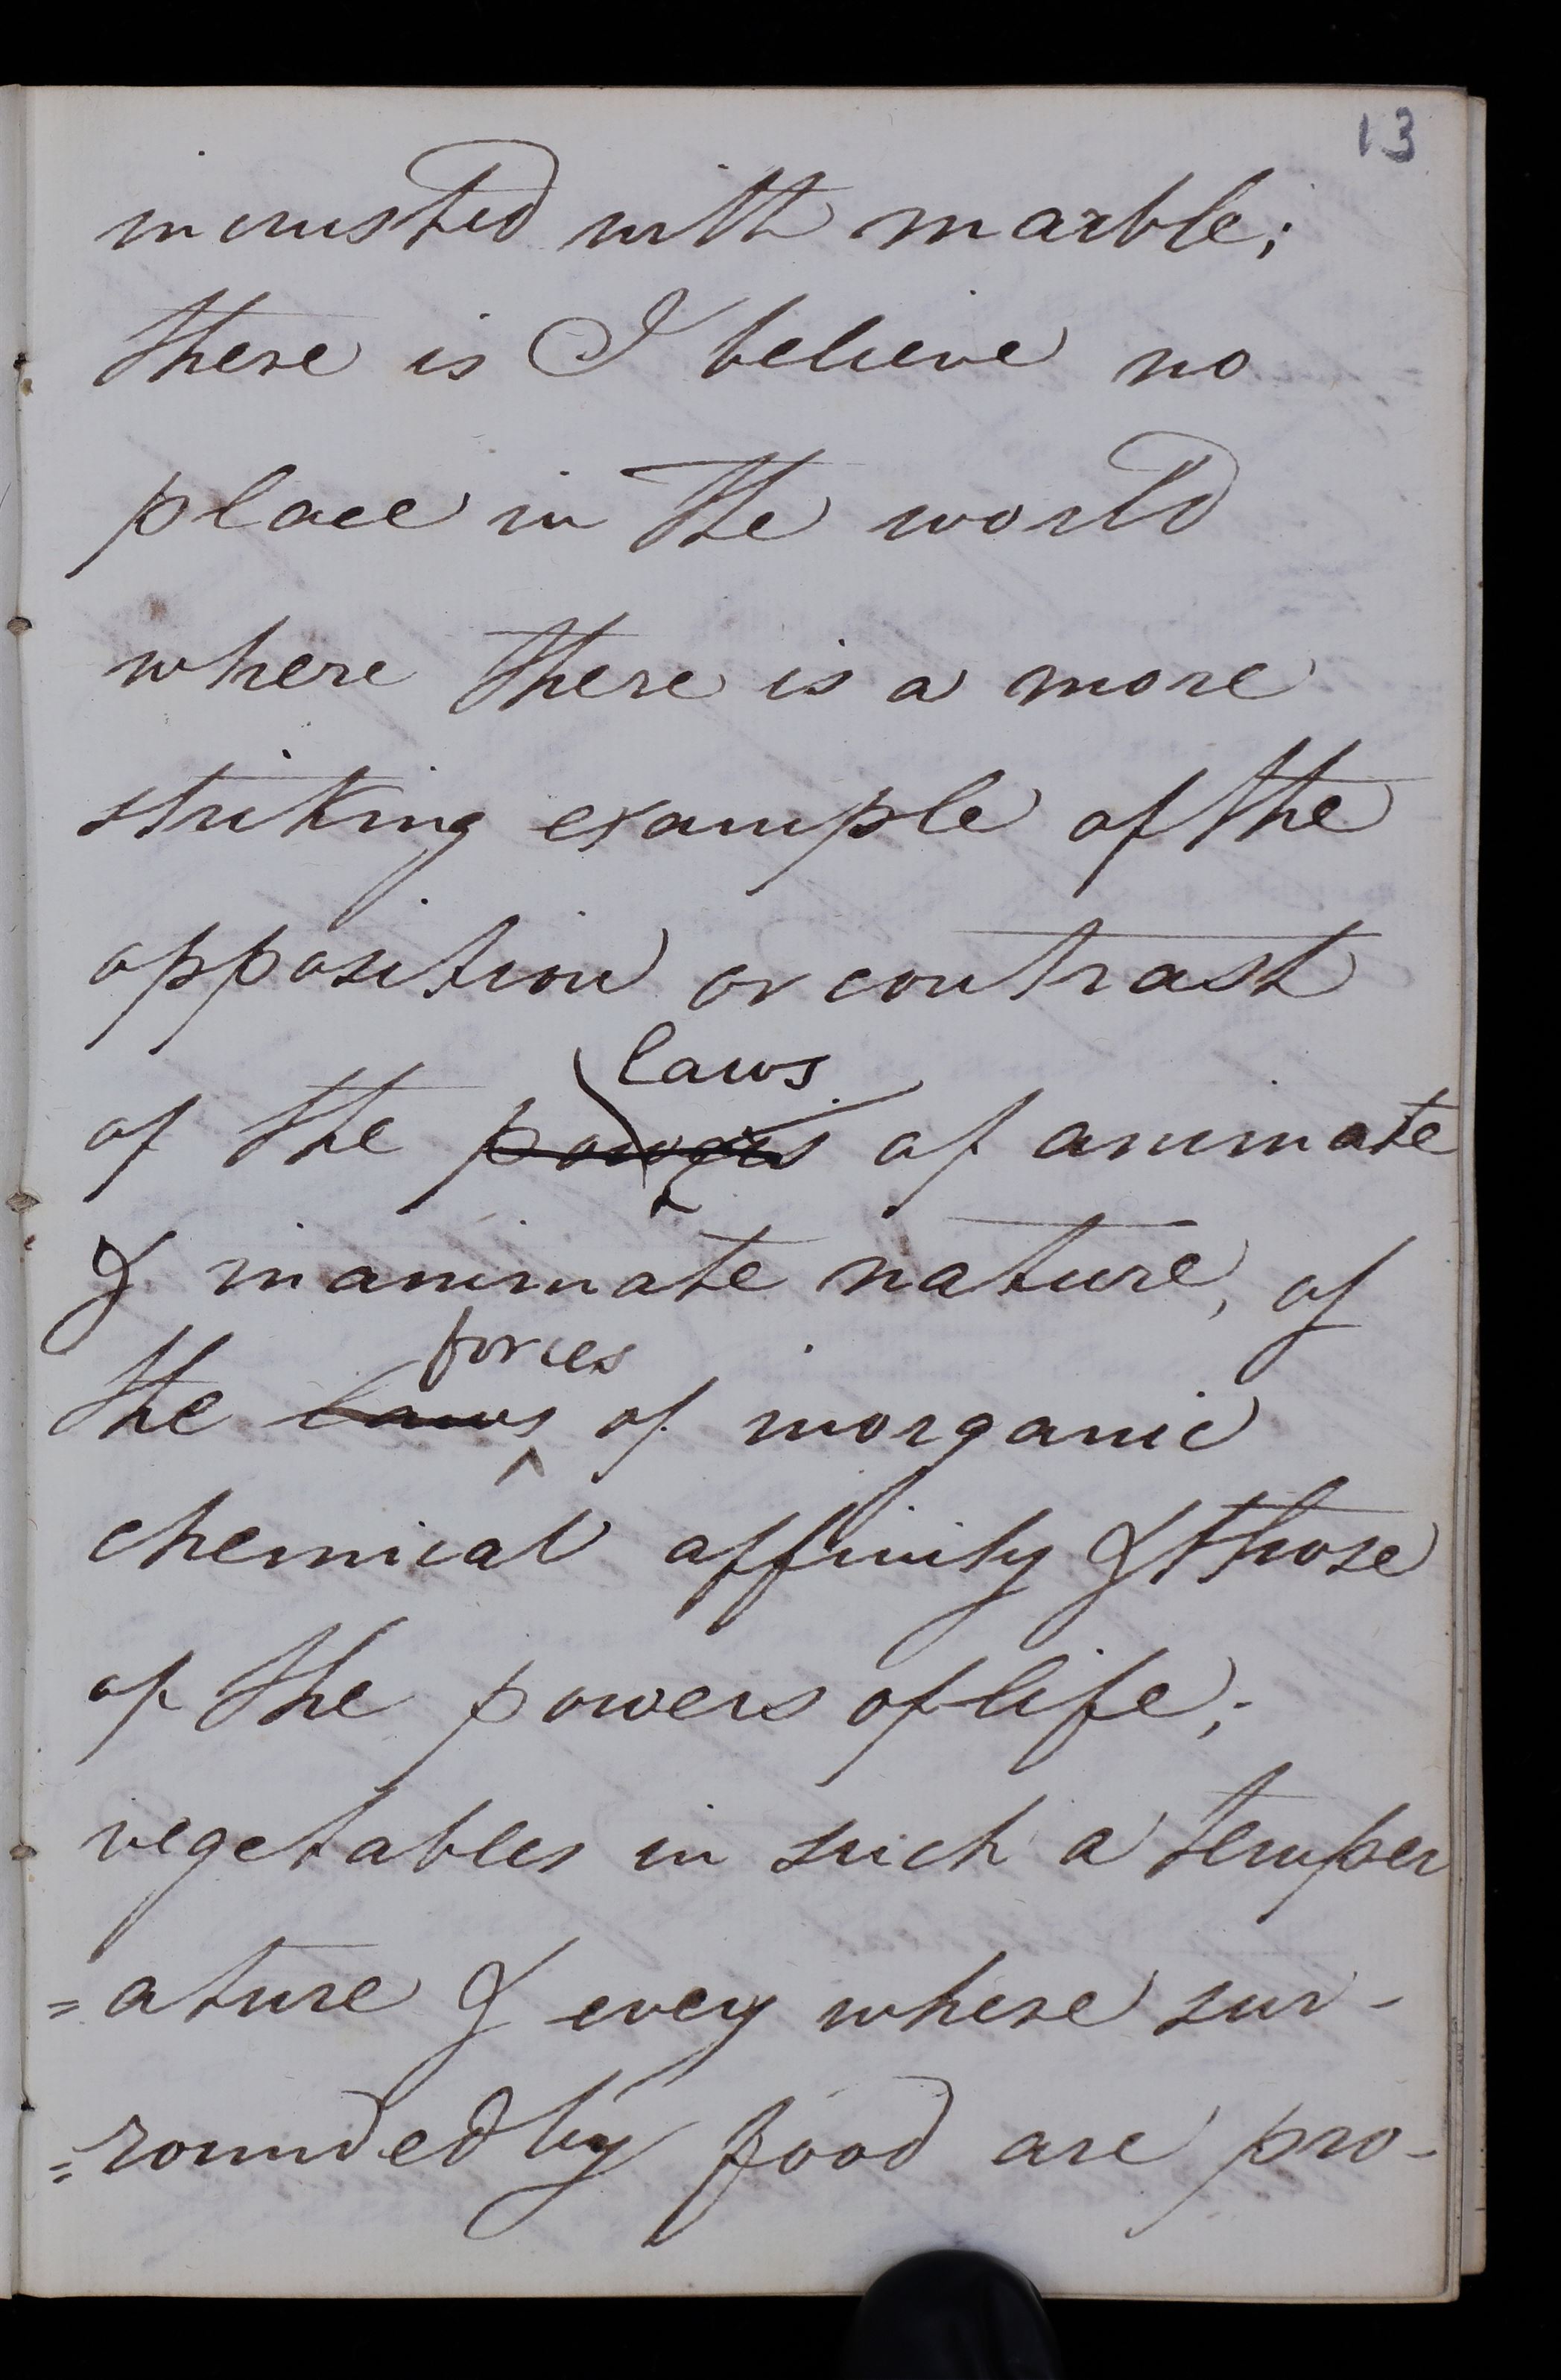 13
incrusted with marble;
there is I believe no
place in the world
where there is a more
striking example of the
opposition or contrast
laws
of the powers of animate
& inanimate nature, of
forces
the laws of inorganic
chemical affinity & those
of the powers of life;
vegetables in such a temper
=ature & every where sur-
=rounded by food are pro-